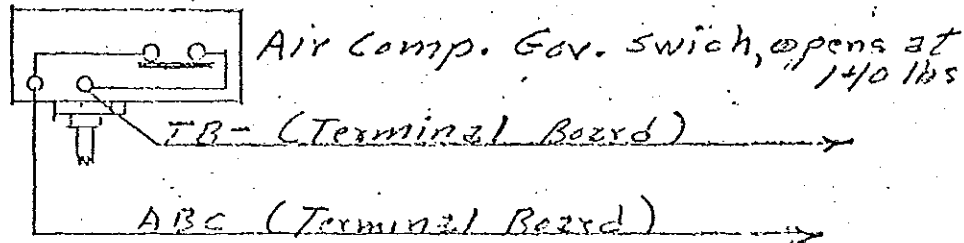 Air Comp. Gov. Swich, opens at
140 lbs
TB- (Terminal Board)
ABC (Terminal Board)